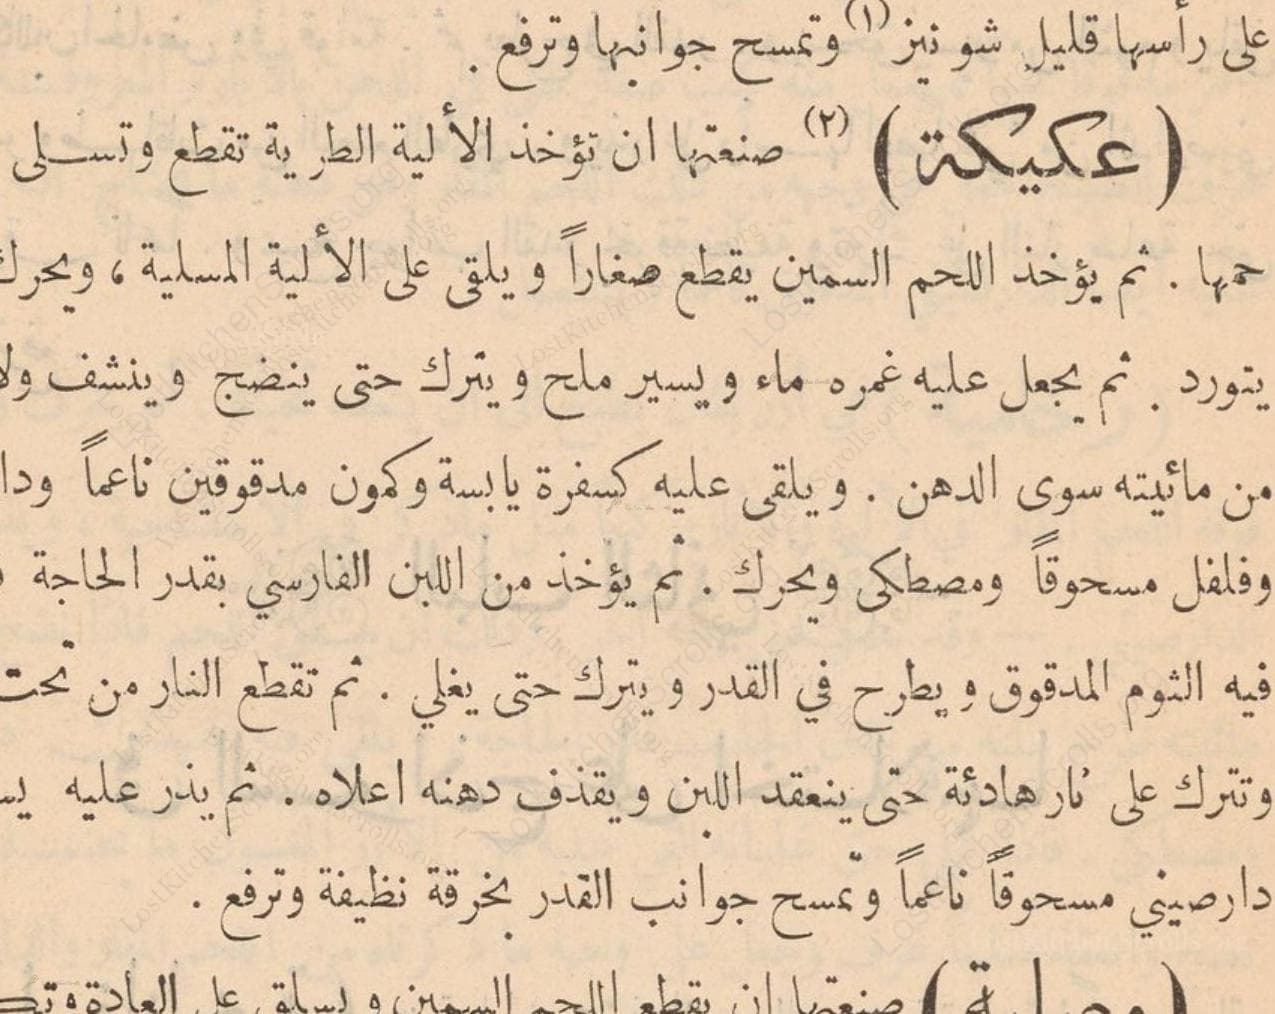 على رأسها قليل شونيز (١) وتمسح جوانبها وترفع .
(عكيكة) (٢) صنعتها ان تؤخذ الألية الطرية تقطع وتسلى
حمها . ثم يؤخذ اللحم السمين يقطع صغاراً ويلقى على الألية المسلية ، ويحرك
يتورد . ثم يجعل عليه غمره ماء ويسير ملح ويترك حتى ينضج وينشف ولا
من مائيته سوى الدهن . ويلقى عليه كسفرة يابسة وكمون مدقوقين ناعماً ودا
وفلفل مسحوقاً ومصطكى ويحرك . ثم يؤخذ من اللبن الفارسي بقدر الحاجة
فيه الثوم المدقوق ويطرح في القدر ويترك حتى يغلي . ثم تقطع النار من تحت
وتترك على نار هادئة حتى ينعقد اللبن ويقذف دهنه اعلاه . ثم يذر عليه يس
دارصيني مسحوقاً ناعماً وتمسح جوانب القدر بخرقة نظيفة وترفع .
صنعتها ان يقطع اللحم السمين ويسلق على العادة وتك